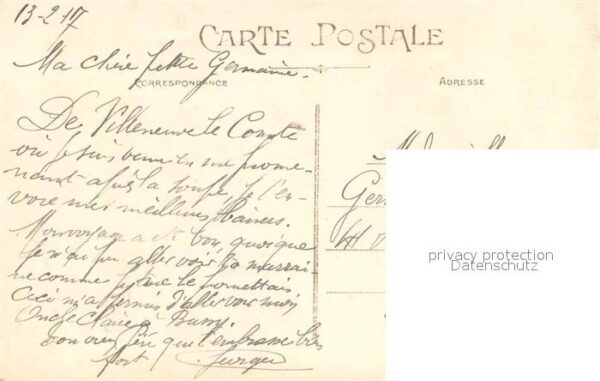 13-2-17
CARTE POSTALE
Ma chère petite Germaine.
CORRESPONDANCE
ADRESSE
De Villeneuve le Comte
où je suis venu en me prome-
nant après la soupe, je t'en-
voie mes meilleurs baisers.
Mon voyage a été bon, quoique
je n'ai pu aller voir ta marrai-
ne comme je me le promettais
Ceci m'a permis d'aller voir mon
Oncle à Bussy.
ton frère qui t'embrasse bien
fort
Ger
privacy protection
Datenschutz